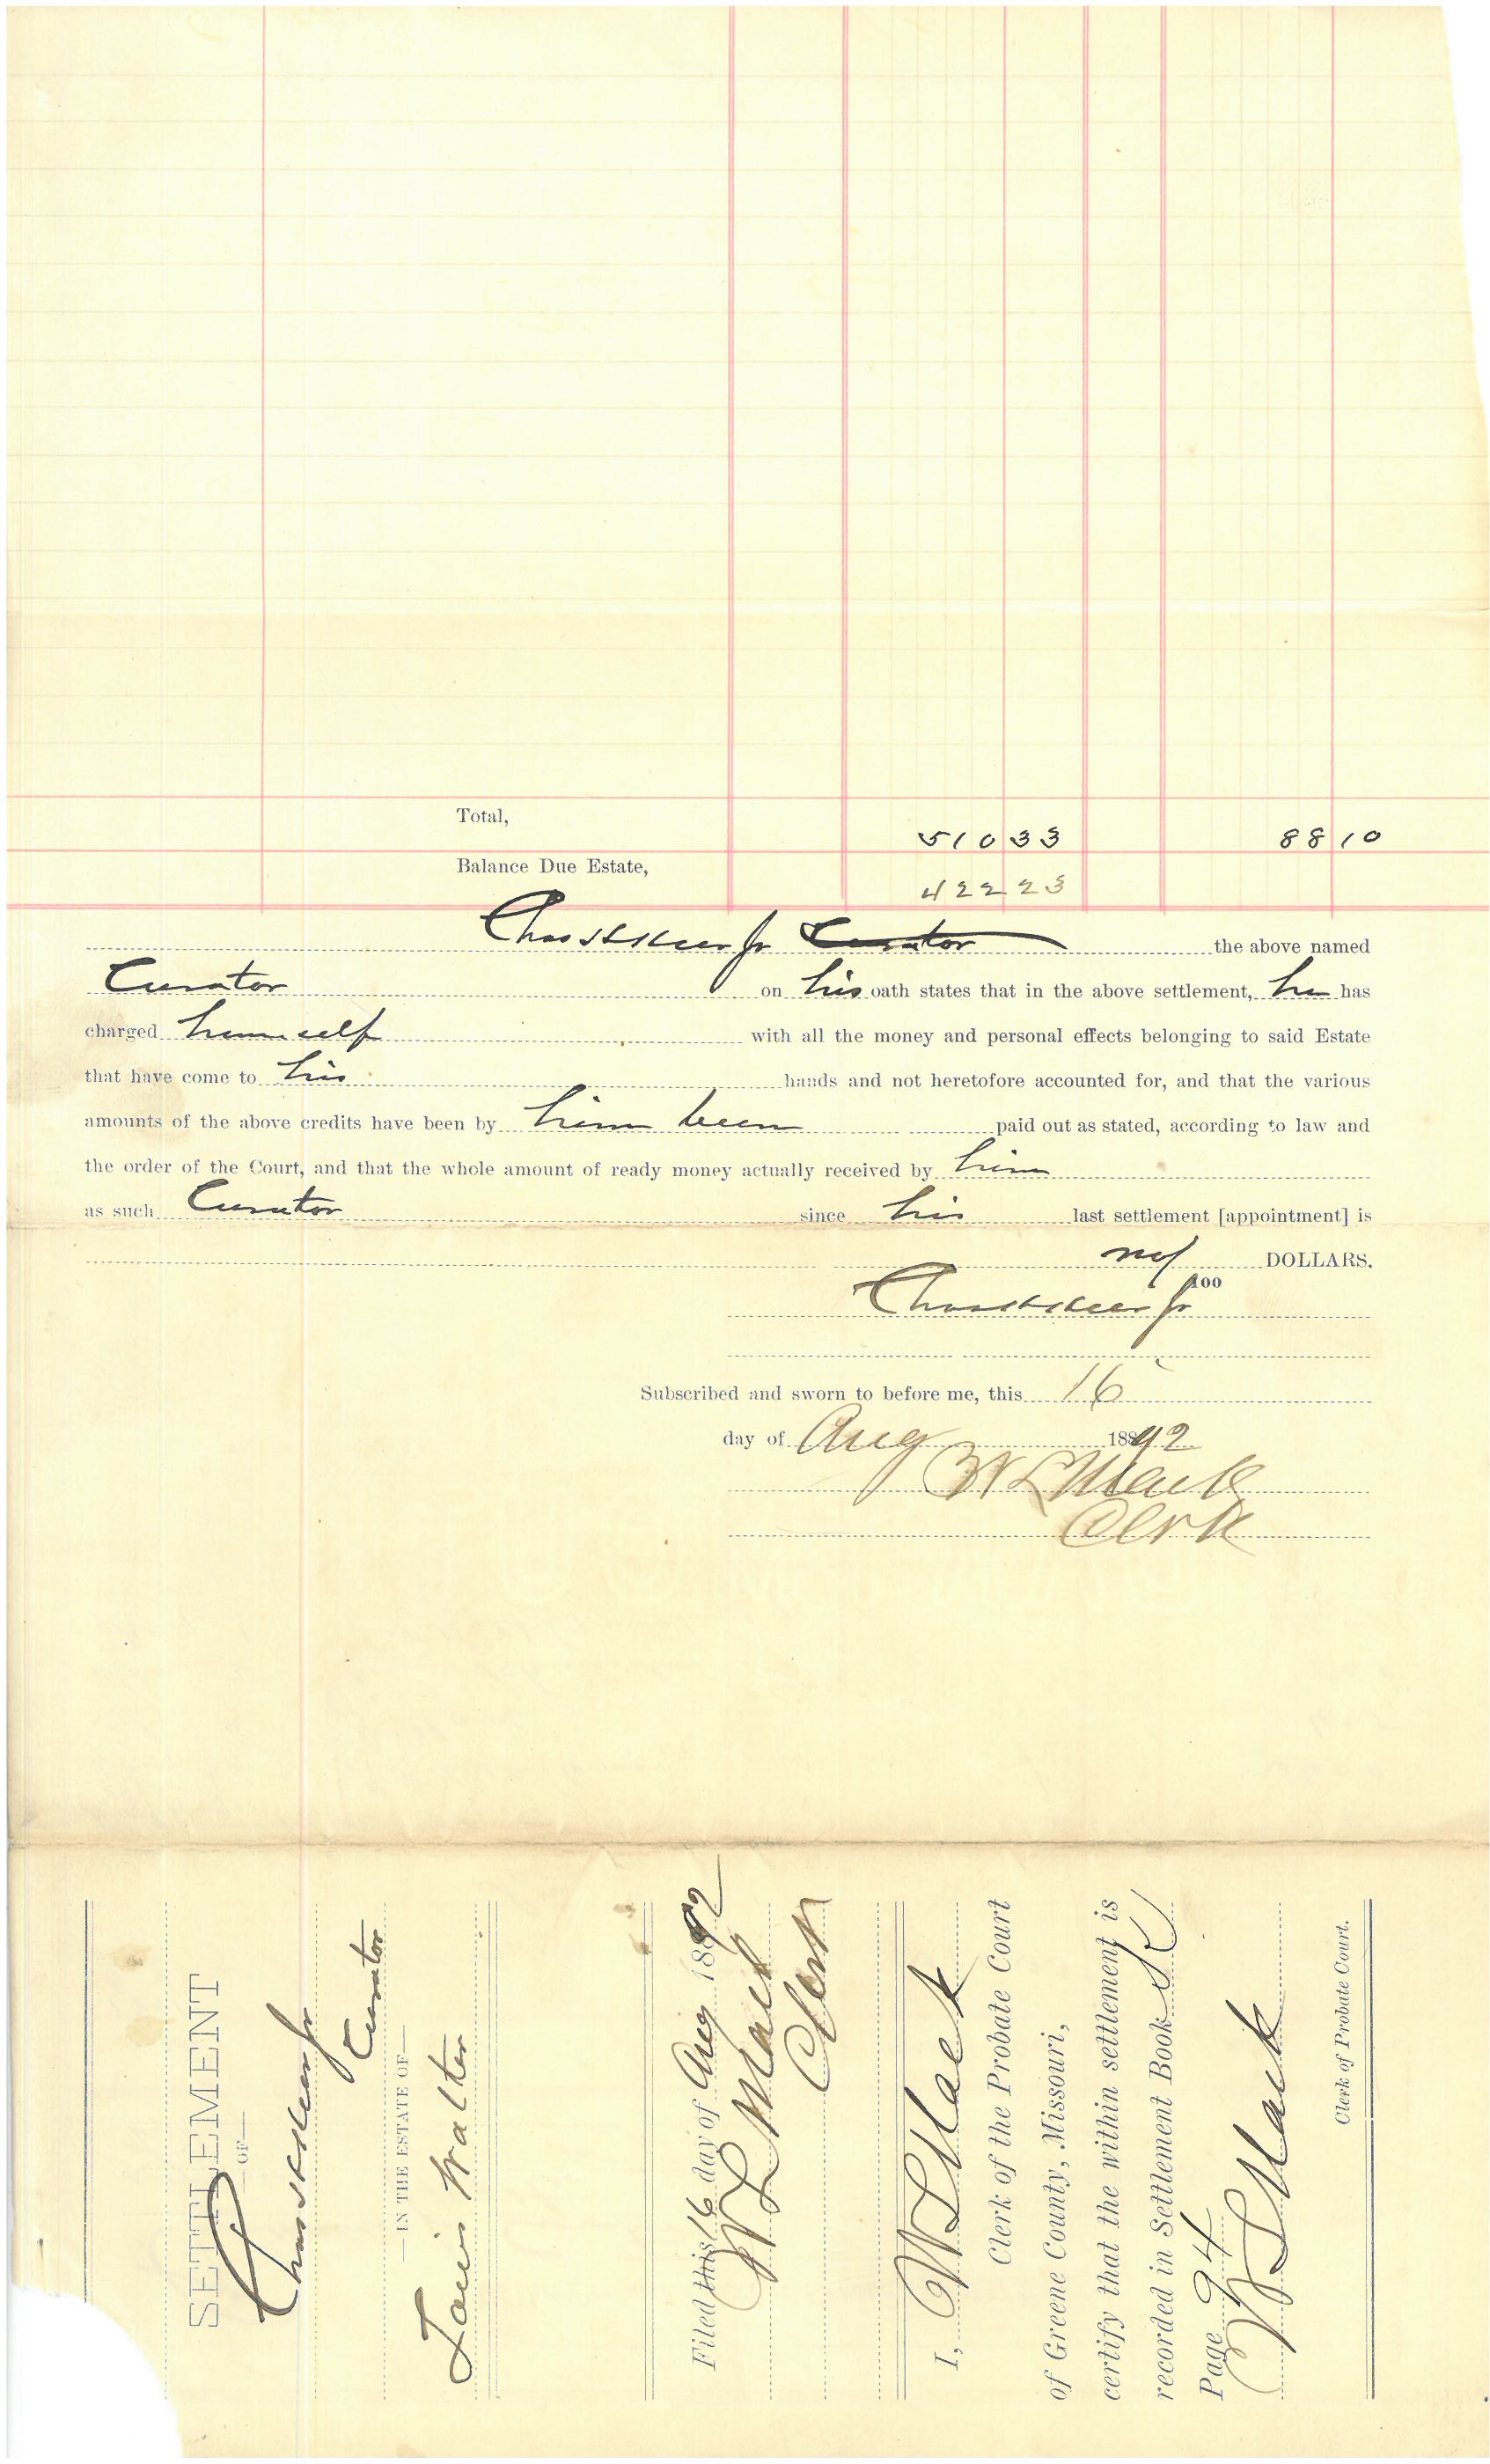 Total, 510 33 88 10
Balance Due Estate, 422 23
Chas H Keer Jr Curator the above named
Curator on his oath states that in the above settlement, he has
charged himself with all the money and personal effects belonging to said Estate
that have come to his hands and not heretofore accounted for, and that the various
amounts of the above credits have been by him been paid out as stated, according to law and
the order of the Court, and that the whole amount of ready money actually received by him
as such Curator since his last settlement [appointment] is
no/100 DOLLARS.
Chas H Keer Jr
Subscribed and sworn to before me, this 16
day of Aug 1892
W L Mack
Clerk
SETTLEMENT
—OF—
Chas H Keer Jr
Curator
—IN THE ESTATE OF—
Louis Walter
Filed this 16 day of Aug 1892
W L Mack
Clerk
I, W L Mack
Clerk of the Probate Court
of Greene County, Missouri,
certify that the within settlement is
recorded in Settlement Book K
Page 94
W L Mack
Clerk of Probate Court.